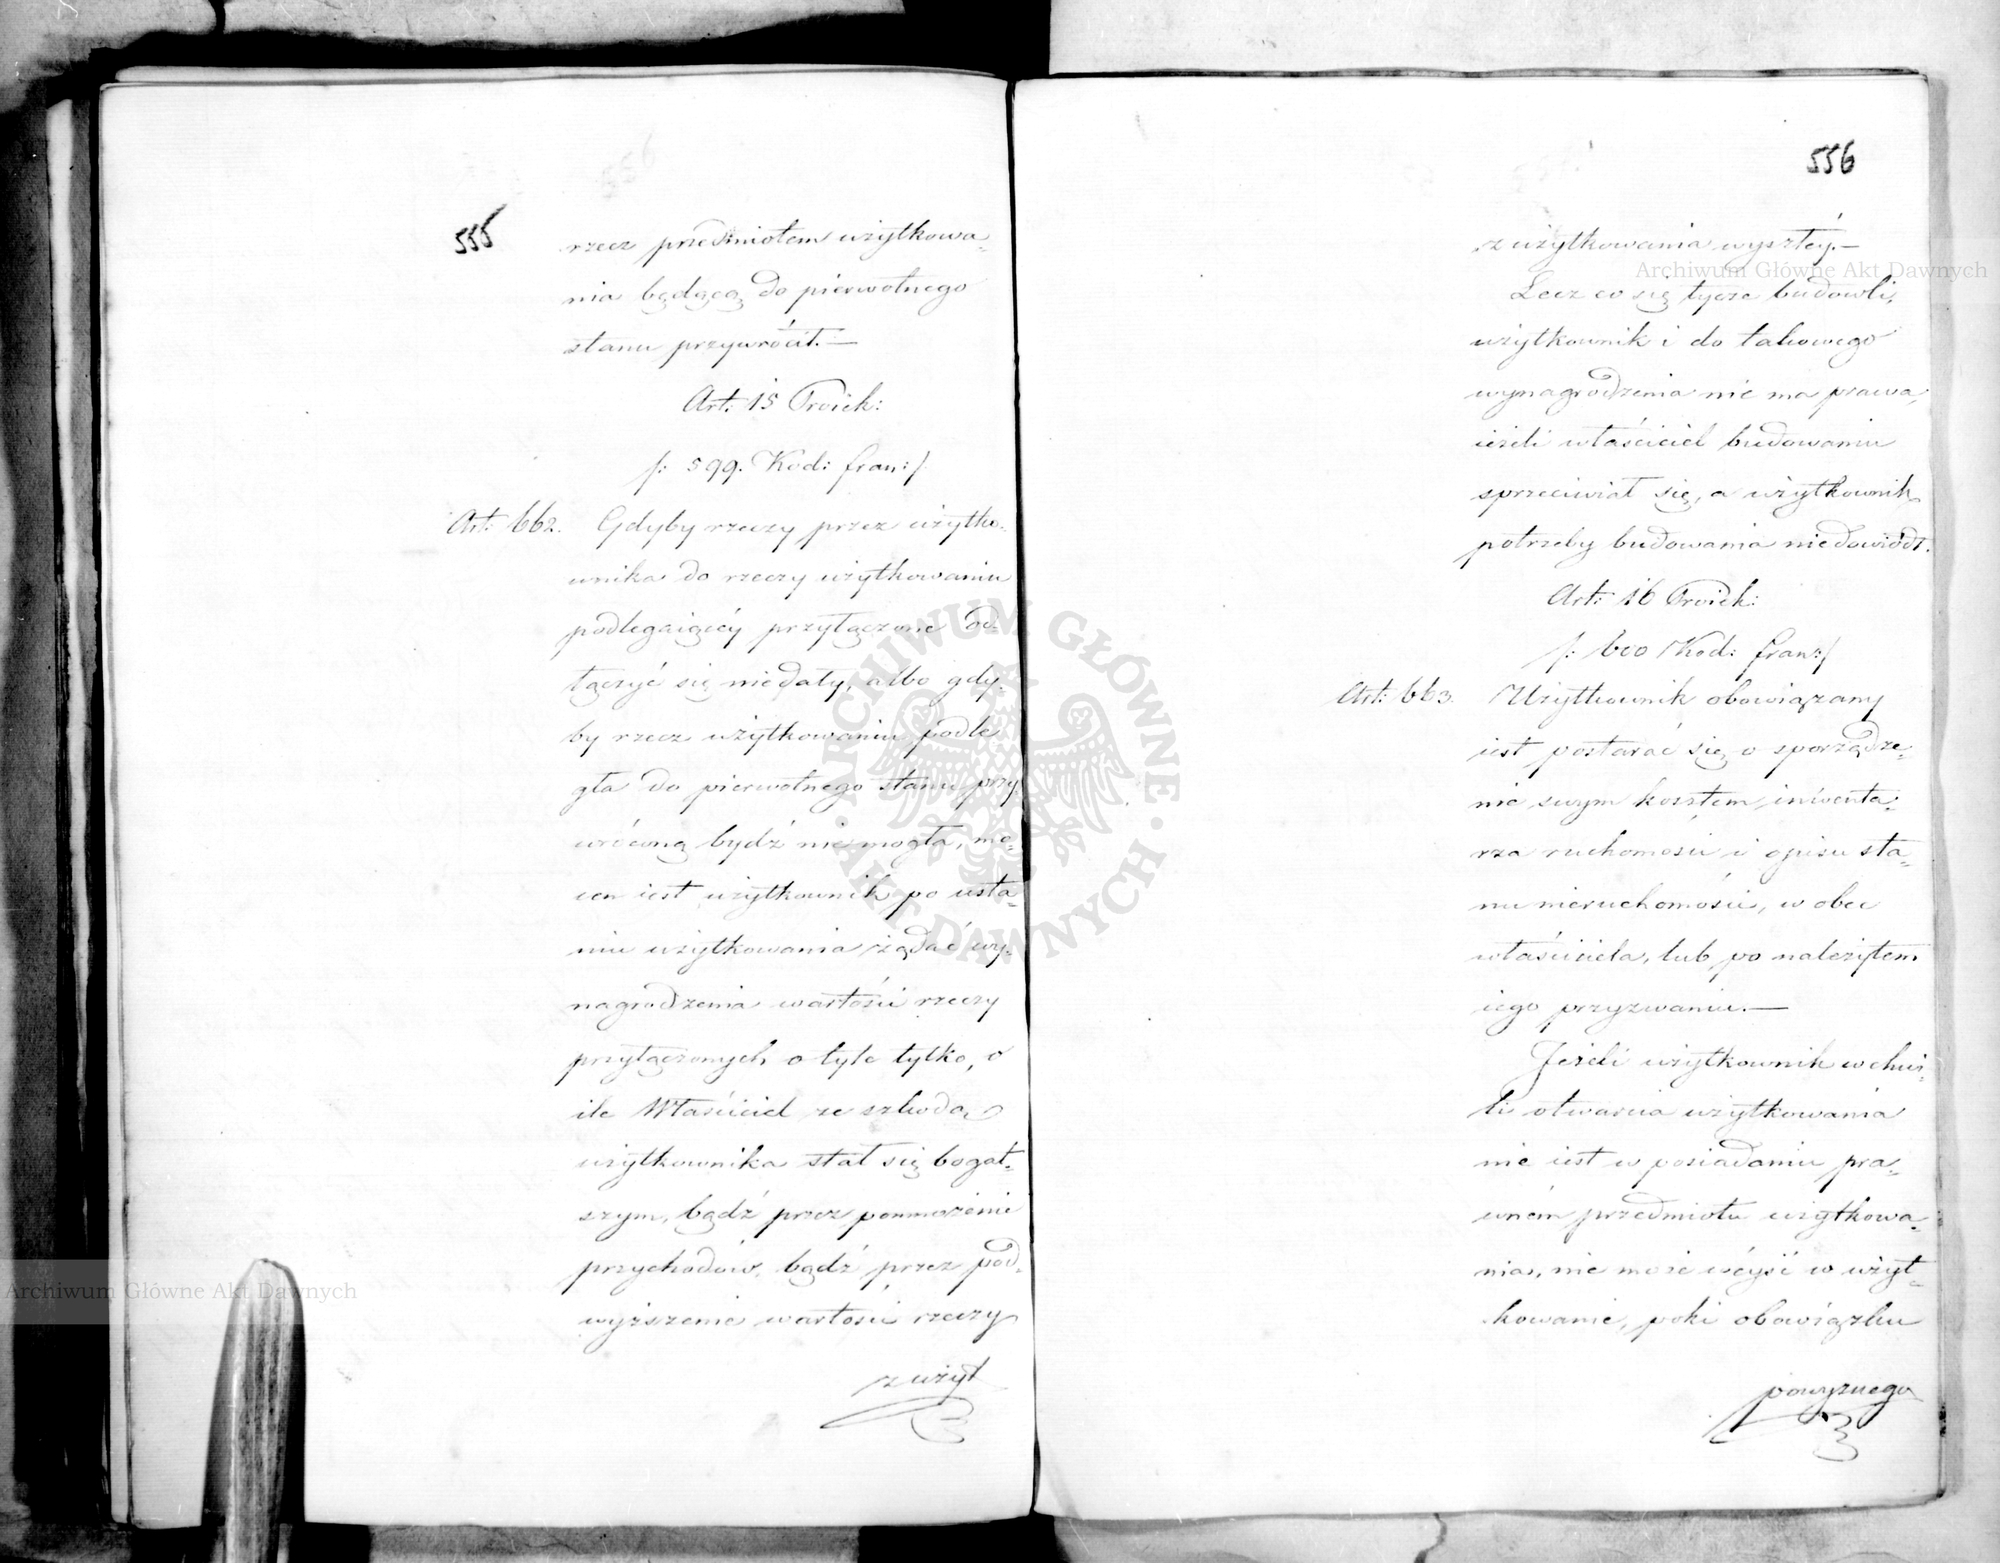 555
rzecz przedmiotem użytkowa=
nia będącą do pierwotnego
stanu przywrócił.—
Art: 15 Proiek:
/: 599. Kod: fran:/
Art: 662. Gdyby rzeczy przez użytko=
wnika do rzeczy użytkowaniu
podlegaiącéy przyłączone od=
łączyć się niedały, albo gdy=
by rzecz użytkowaniu podle
gła do pierwotnego stanu przy
wróconą bydź nie mogła, mo=
cen iest użytkownik po usta=
niu użytkowania żądać wy=
nagrodzenia wartości rzeczy
przyłączonych o tyle tylko, o
ile Właściciel ze szkodą
użytkownika stał się bogat=
szym, bądź przez pomnożenie
przychodów, bądź przez pod=
wyższenie wartości rzeczy
z użyt
556
z użytkowania wyszłéy.—
Lecz co się tycze budowli,
użytkownik i do takowego
wynagrodzenia nie ma prawa,
ieżeli właściciel budowaniu
sprzeciwiał się, a użytkownik
potrzeby budowania niedowiódł.
Art: 16 Proiek:
/: 600 Kod: fran:/
Art: 663. Użytkownik obowiązany
iest postarać się o sporządze=
nie swym kosztem, inwenta=
rza ruchomości i opisu sta=
nu nieruchomości, w obec
właściciela, lub po należytem
iego przyzwaniu.—
Jeżeli użytkownik w chwi=
li otwarcia użytkowania
nie iest w posiadaniu pra=
wném przedmiotu użytkowa=
nia, nie może wéyść w użyt=
kowanie, poki obowiązku
powyższego
Archiwum Główne Akt Dawnych
ARCHIWUM GŁÓWNE · AKT DAWNYCH ·
Archiwum Główne Akt Dawnych